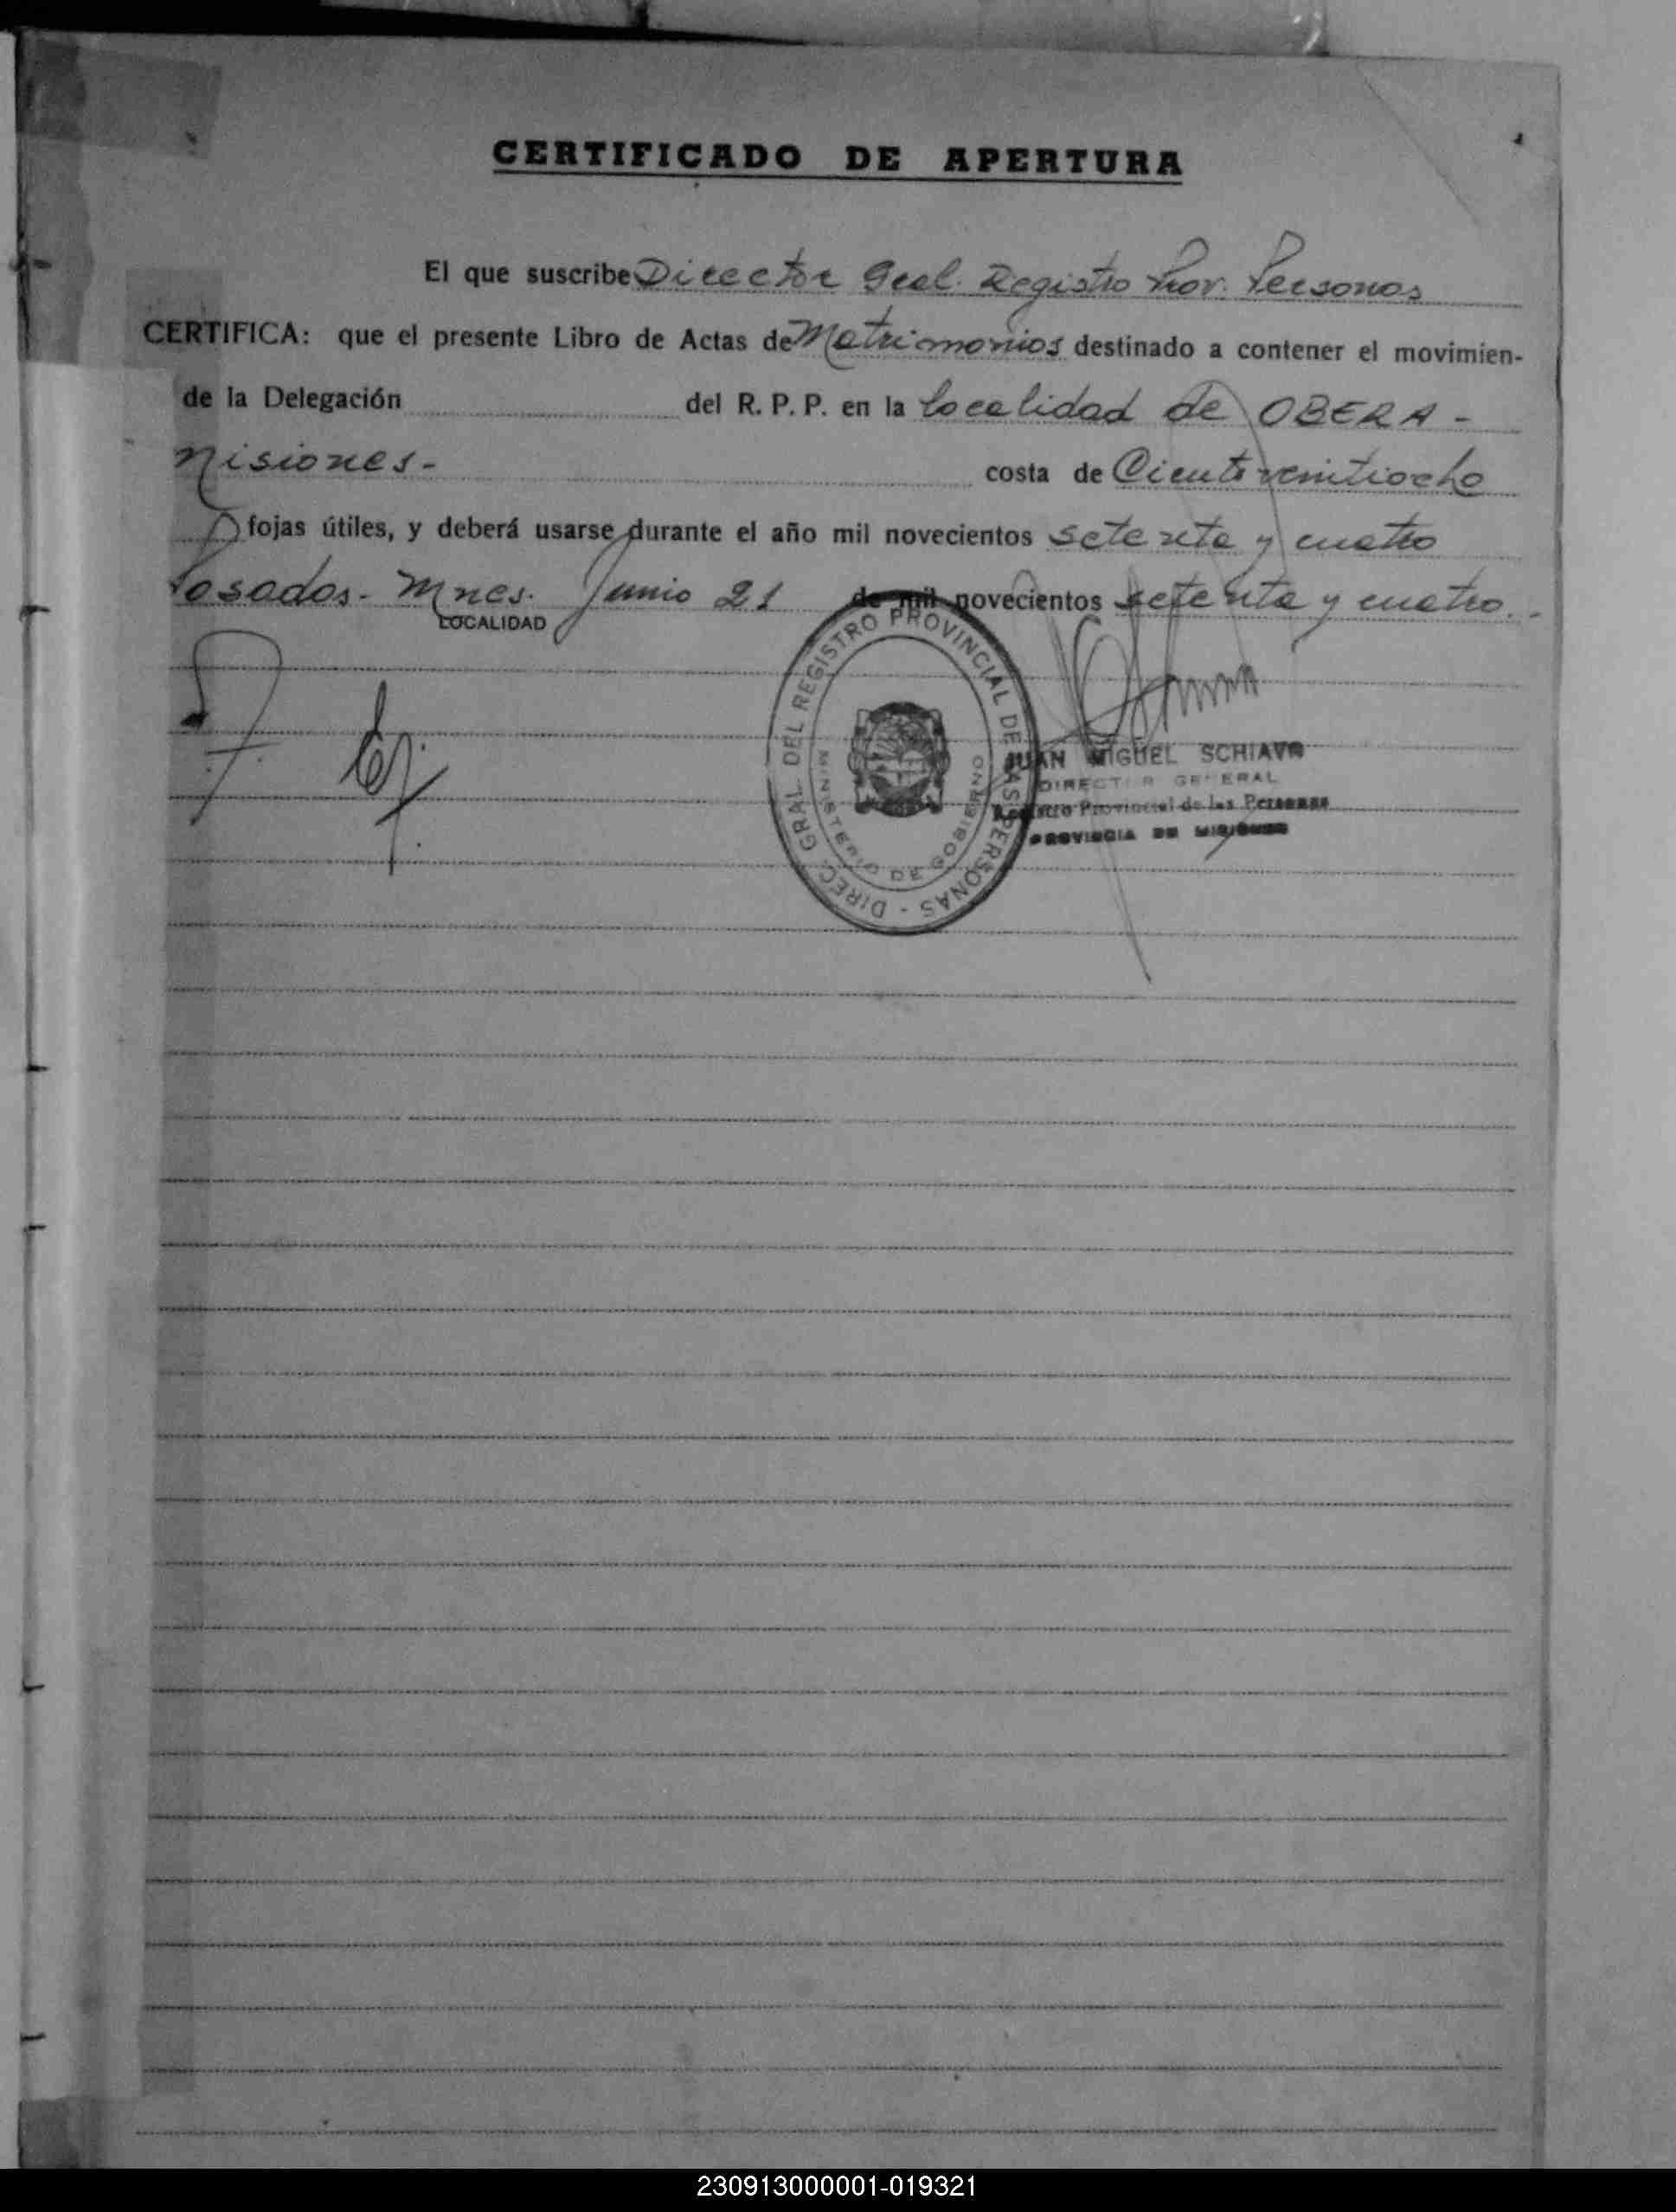 CERTIFICADO DE APERTURA
El que suscribe Director Gral. Registro Prov. Personas
CERTIFICA: que el presente Libro de Actas de Matrimonios destinado a contener el movimien-
de la Delegación del R. P. P. en la localidad de OBERA -
Misiones.- costa de Cientoveintiocho
fojas útiles, y deberá usarse durante el año mil novecientos setenta y cuatro
Posadas - Mnes. Junio 21 de mil novecientos setenta y cuatro.-
LOCALIDAD
DIREC. GRAL. DEL REGISTRO PROVINCIAL DE LAS PERSONAS -
MINISTERIO DE GOBIERNO
JUAN MIGUEL SCHIAVO
DIRECTOR GENERAL
Registro Provincial de las Personas
PROVINCIA DE MISIONES
230913000001-019321